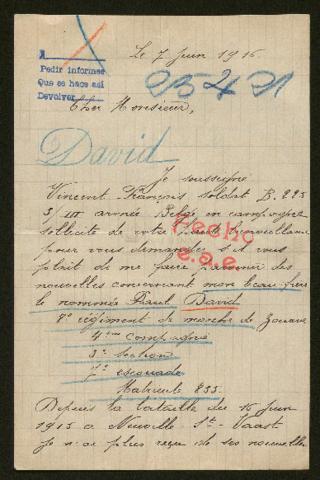 A
Pedir informes
Que se hace así
Devolver
Le 7 Juin 1916
95421
Cher Monsieur,
David
Je soussigné
Vincent François soldat B. 225
3/III armée Belge en campagne
sollicite de votre haute bienveillance
pour vous demander s'il vous
plait de me faire parvenir des
nouvelles concernant mon beau frère
le nommé Paul David
Hecho
8e régiment de marche de Zouave
4ème compagnie
3e section
7e escouade
Matricule 855.
Depuis la bataille du 16 Juin
1915 a Neuville-St-Vaast
je n'ai plus reçu de ses nouvelles